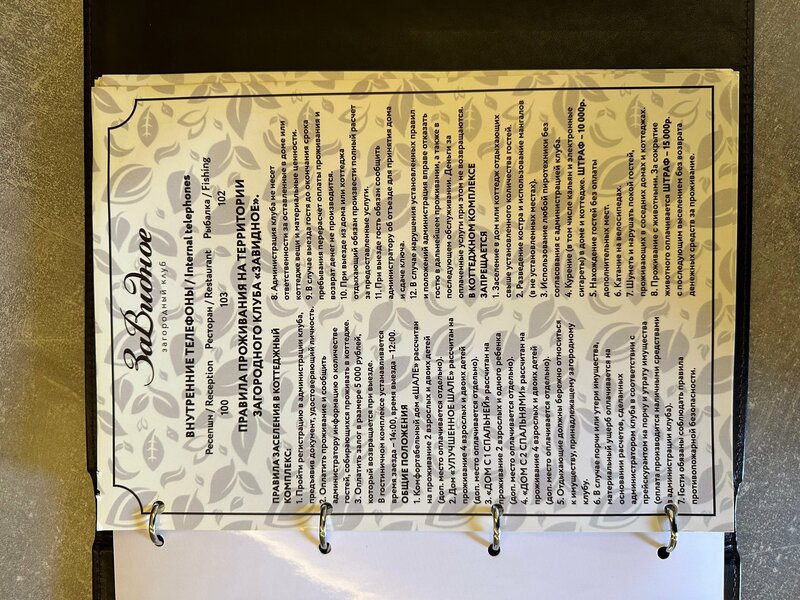 ЗаВидное
загородный клуб
ВНУТРЕННИЕ ТЕЛЕФОНЫ / Internal telephones
Ресепшн / Reception Ресторан / Restaurant Рыбалка / Fishing
100 103 102
ПРАВИЛА ПРОЖИВАНИЯ НА ТЕРРИТОРИИ
ЗАГОРОДНОГО КЛУБА «ЗАВИДНОЕ».
ПРАВИЛА ЗАСЕЛЕНИЯ В КОТТЕДЖНЫЙ
КОМПЛЕКС:
1. Пройти регистрацию в администрации клуба,
предъявив документ, удостоверяющий личность.
2. Оплатить проживание и сообщить
администратору информацию о количестве
гостей, собирающихся проживать в коттедже.
3. Оплатить залог в размере 5 000 рублей,
который возвращается при выезде.
В гостиничном комплексе устанавливается
время заезда – 14:00, время выезда – 12:00.
ОБЩИЕ ПОЛОЖЕНИЯ
1. Комфортабельный дом «ШАЛЕ» рассчитан
на проживание 2 взрослых и двоих детей
(доп. место оплачивается отдельно).
2. Дом «УЛУЧШЕННОЕ ШАЛЕ» рассчитан на
проживание 4 взрослых и двоих детей
(доп. место оплачивается отдельно).
3. «ДОМ С 1 СПАЛЬНЕЙ» рассчитан на
проживание 2 взрослых и одного ребенка
(доп. место оплачивается отдельно).
4. «ДОМ С 2 СПАЛЬНЯМИ» рассчитан на
проживание 4 взрослых и двоих детей
(доп. место оплачивается отдельно).
5. Отдыхающие обязаны бережно относиться
к имуществу, принадлежащему загородному
клубу.
6. В случае порчи или утери имущества,
материальный ущерб оплачивается на
основании расчетов, сделанных
администратором клуба в соответствии с
прейскурантом на порчу и утрату имущества
(оплата производится наличными средствами
в администрации клуба)
7. Гости обязаны соблюдать правила
противопожарной безопасности.
8. Администрация клуба не несет
ответственности за оставленные в доме или
коттедже вещи и материальные ценности.
9. В случае выезда гостя до окончания срока
пребывания перерасчет оплаты проживания и
возврат денег не производится.
10. При выезде из дома или коттеджа
отдыхающий обязан произвести полный расчет
за предоставленные услуги.
11. При выезде гость обязан сообщить
администратору об отъезде для принятия дома
и сдаче ключа.
12. В случае нарушения установленных правил
и положений администрация вправе отказать
гостю в дальнейшем проживании, а также в
последующем обслуживании. Деньги за
оплаченные услуги при этом не возвращаются.
В КОТТЕДЖНОМ КОМПЛЕКСЕ
ЗАПРЕЩАЕТСЯ
1. Заселение в дом или коттедж отдыхающих
свыше установленного количества гостей.
2. Разведение костра и использование мангалов
(в не установленных местах).
3. Использование любой пиротехники без
согласования с администрацией клуба.
4. Курение (в том числе кальян и электронные
сигареты) в доме и коттедже. ШТРАФ – 10 000р.
5. Нахождение гостей без оплаты
дополнительных мест.
6. Катание на велосипедах.
7. Шуметь и нарушать покой гостей,
проживающих в соседних домах и коттеджах.
8. Проживание с животными. За сокрытие
животного оплачивается ШТРАФ – 15 000р.
с последующим выселением без возврата
денежных средств за проживание.